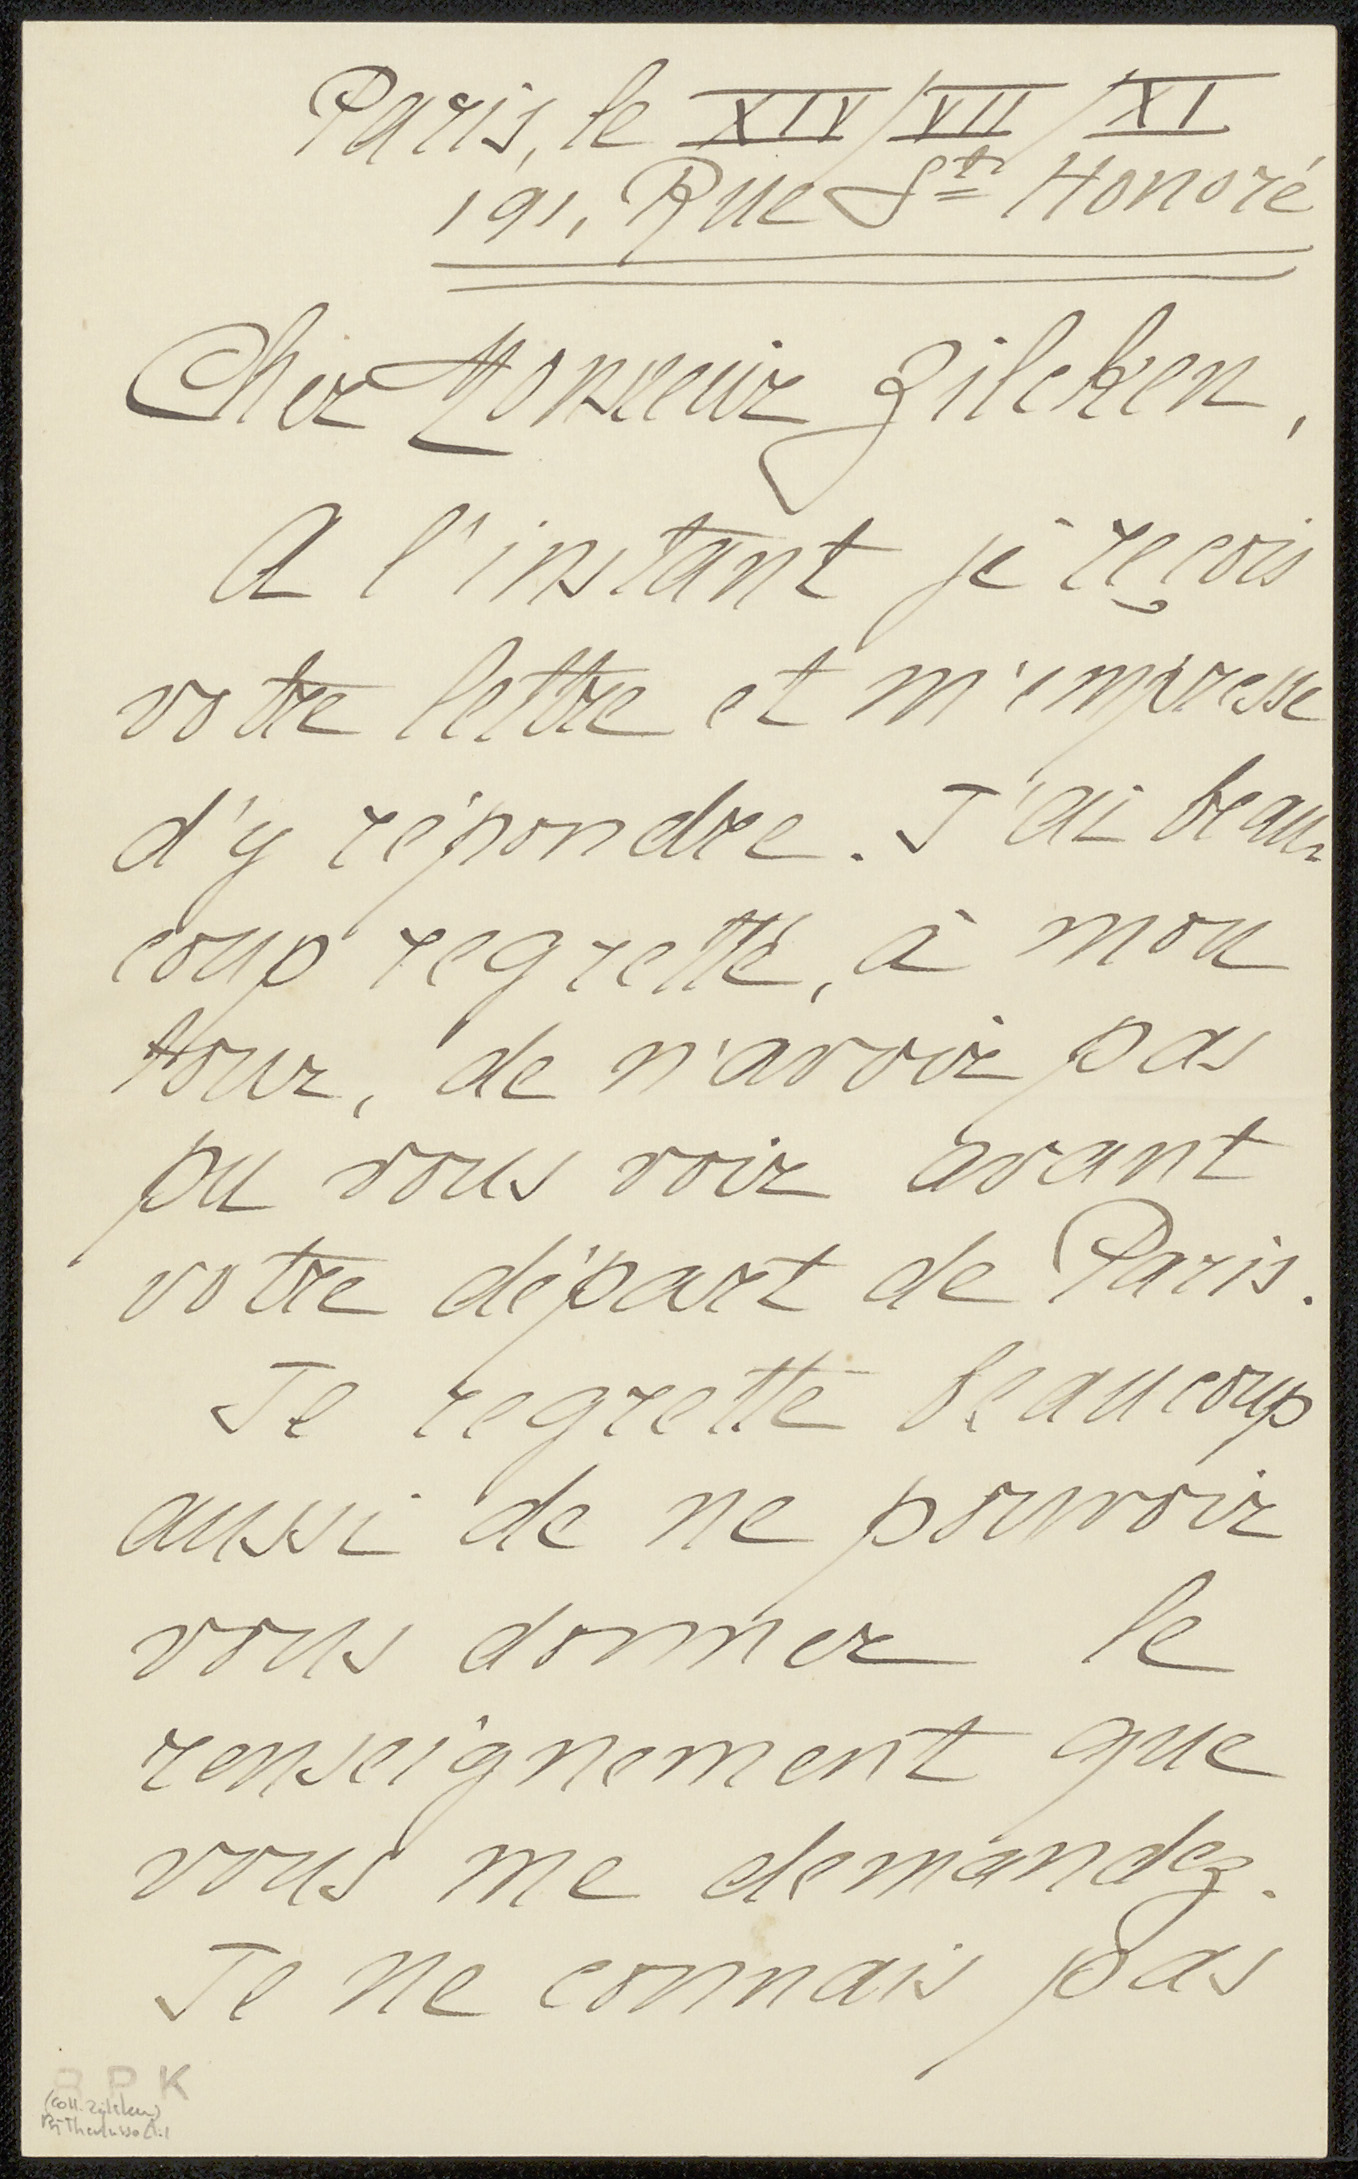 Paris, le XIV/VII/XI
191, Rue St Honoré
Cher Monsieur Zilcken,
A l'instant je reçois
votre lettre et m'empresse
d'y répondre. J'ai beau-
coup regretté, à mon
tour, de n'avoir pas
pu vous voir avant
votre départ de Paris.
Je regrette beaucoup
aussi de ne pouvoir
vous donner le
renseignement que
vous me demandez.
Je ne connais pas
BPK
(Coll. Zilcken)